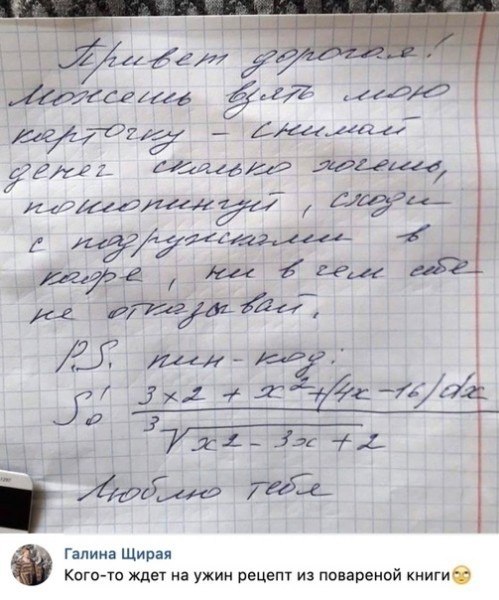 Привет дорогая!
Можешь взять мою
карточку - снимай
денег сколько хочешь,
пошопингуй, сходи
с подружками в
кафе, ни в чем себе
не отказывай.
P.S. пин-код:
∫₀¹ (3×2 + x² + (4x - 16) dx) / ∛(x2 - 3x + 2)
Люблю тебя
Галина Щирая
Кого-то ждет на ужин рецепт из повареной книги🙄